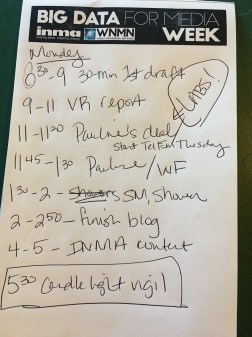 BIG DATA FOR MEDIA
inma WNMN WEEK
Monday
6:30 - 9 30-min 1st draft
9 - 11 VR report
LAMBS!
11 - 1120 Pauline's deal
Start Tel Fam Thursday
1145 - 130 Pauline/WF
130 - 2 - SM, Shower
2 - 250 - finish blog
4 - 5 - INMA contest
530 Candlelight vigil